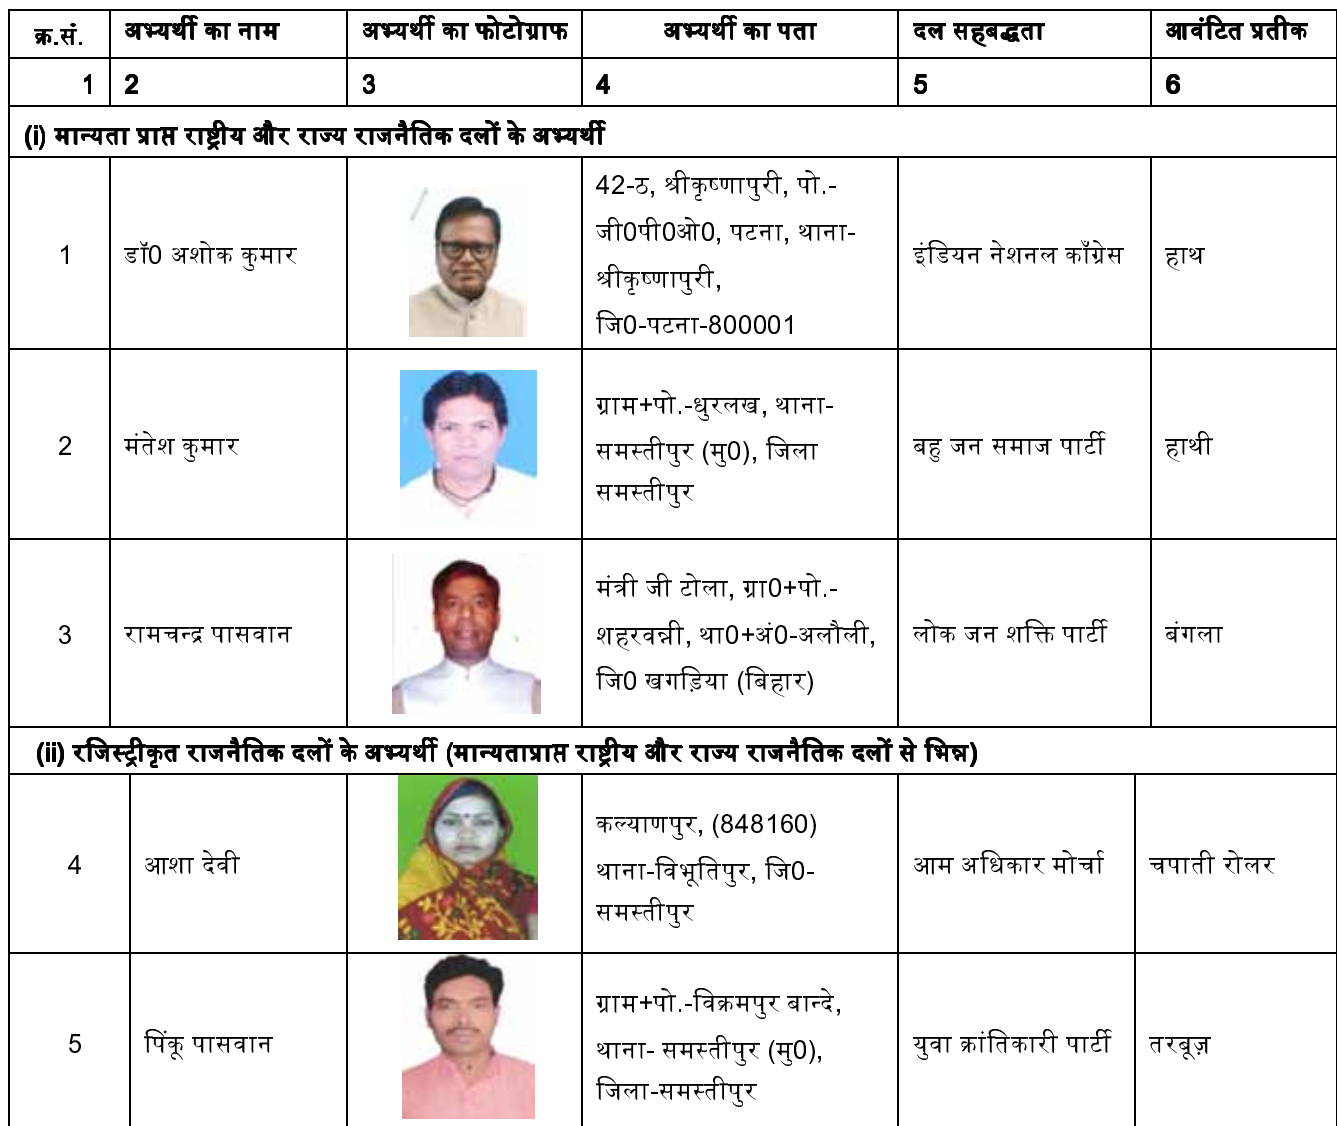 क्र.सं. अभ्यर्थी का नाम अभ्यर्थी का फोटोग्राफ अभ्यर्थी का पता दल सहबद्धता आवंटित प्रतीक
1 2 3 4 5 6
(i) मान्यता प्राप्त राष्ट्रीय और राज्य राजनैतिक दलों के अभ्यर्थी
1 डॉ0 अशोक कुमार
42-ठ, श्रीकृष्णापुरी, पो.-
जी0पी0ओ0, पटना, थाना-
श्रीकृष्णापुरी,
जि0-पटना-800001
इंडियन नेशनल काँग्रेस हाथ
2 मंतेश कुमार
ग्राम+पो.-धुरलख, थाना-
समस्तीपुर (मु0), जिला
समस्तीपुर
बहु जन समाज पार्टी हाथी
3 रामचन्द्र पासवान
मंत्री जी टोला, ग्रा0+पो.-
शहरवन्नी, था0+अं0-अलौली,
जि0 खगड़िया (बिहार)
लोक जन शक्ति पार्टी बंगला
(ii) रजिस्ट्रीकृत राजनैतिक दलों के अभ्यर्थी (मान्यताप्राप्त राष्ट्रीय और राज्य राजनैतिक दलों से भिन्न)
4 आशा देवी
कल्याणपुर, (848160)
थाना-विभूतिपुर, जि0-
समस्तीपुर
आम अधिकार मोर्चा चपाती रोलर
5 पिंकू पासवान
ग्राम+पो.-विक्रमपुर बान्दे,
थाना- समस्तीपुर (मु0),
जिला-समस्तीपुर
युवा क्रांतिकारी पार्टी तरबूज़